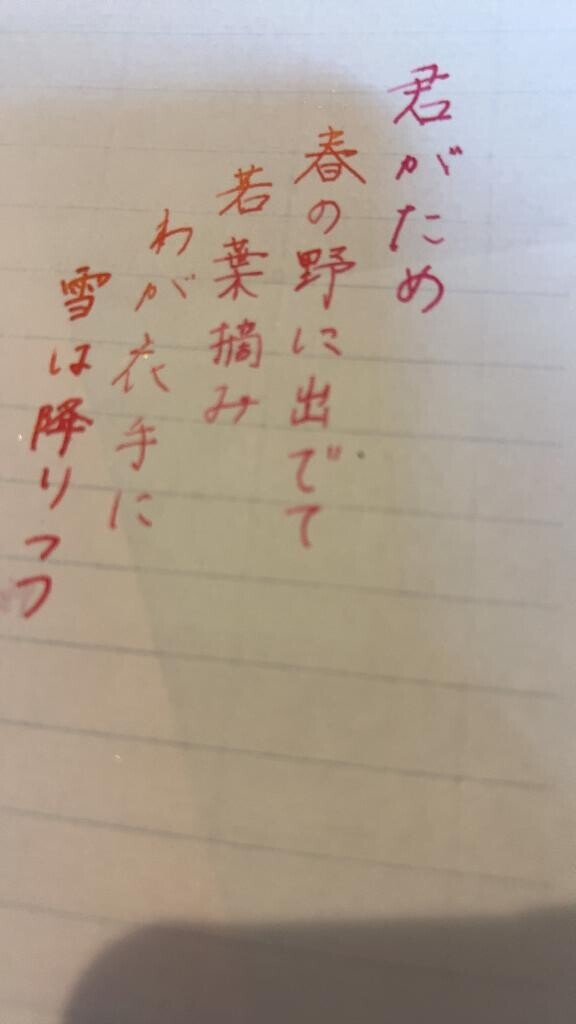 君がため
春の野に出でて
若葉摘み
わが衣手に
雪は降りつつ